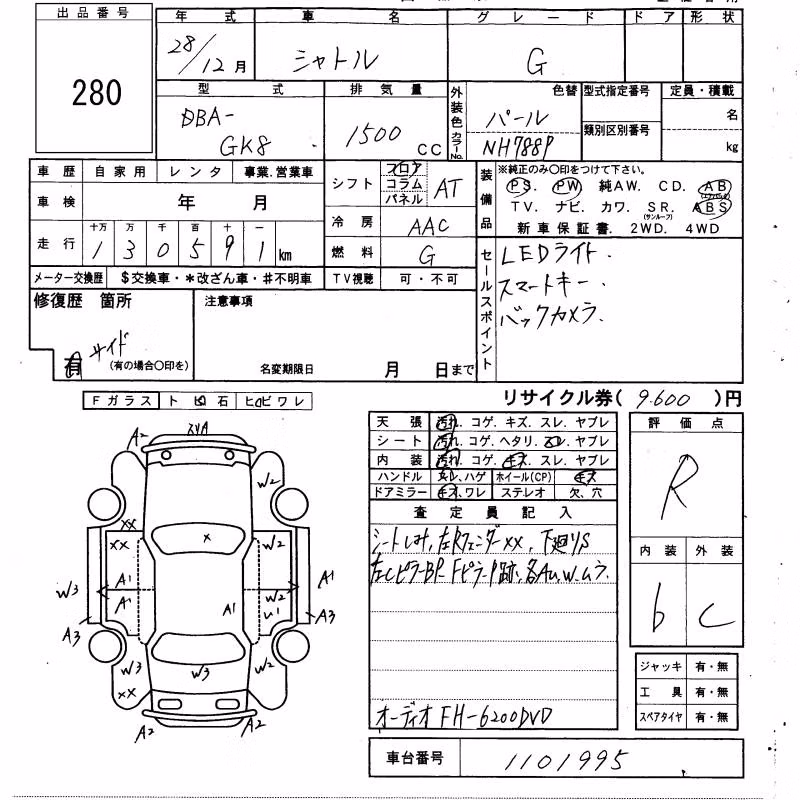 出品番号
280
年 式 車 名 グレード ドア 形状
28/12月 シャトル G
型 式 排気量
DBA-
GK8 1500 CC
外装色 色替 型式指定番号 定員・積載
パール 名
カラーNo. NH788P 類別区別番号 kg
車歴 自家用 レンタ 事業.営業車
車検 年 月
走行 十万 万 千 百 十 一
1 3 0 5 9 1 km
メーター交換歴 $交換車・*改ざん車・#不明車
シフト フロア コラム パネル AT
冷房 AAC
燃料 G
TV視聴 可・不可
装備品 ※純正のみ〇印をつけて下さい。
PS. PW 純AW. CD. AB(エアバッグ)
TV. ナビ. カワ. SR.(サンルーフ) ABS
新車保証書. 2WD. 4WD
セールスポイント
LEDライト.
スマートキー.
バックカメラ.
修復歴 箇所
有 サイド
(有の場合〇印を)
注意事項
名変期限日 月 日まで
リサイクル券( 9.600 )円
Fガラス トビ石 ヒビワレ
天張 汚れ. コゲ. キズ. スレ. ヤブレ
シート 汚れ. コゲ. ヘタリ. スレ. ヤブレ
内装 汚れ. コゲ. キズ. スレ. ヤブレ
ハンドル スレ. ハゲ ホイール(CP) キズ
ドアミラー キズ. ワレ ステレオ 欠. 穴
査定員記入
シートしみ, 左Rフェンダーxx, 下廻りS
左CピラーBP Fピラー P跡, 各Au, W, ムラ.
オーディオ FH-6200DVD
評価点
R
内装 外装
6 C
ジャッキ 有・無
工具 有・無
スペアタイヤ 有・無
車台番号 1101995
A2 A2
W2
xx
xx W2
x
A1 A1
W3 A1 W2
A1
A3 A3
W3 W3 W2
xx
A2 A2